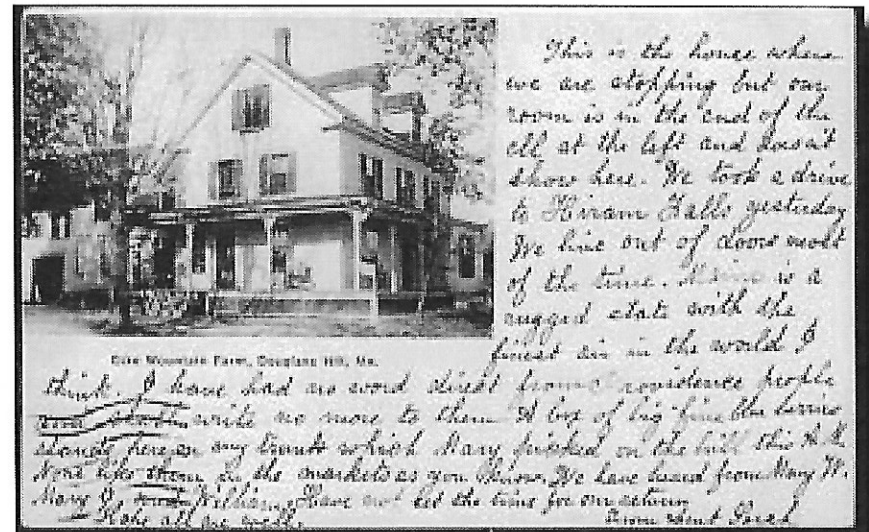 This is the house where
we are stopping but our
room is in the end of the
ell at the left and doesn't
show here. We took a drive
to Hiram Falls yesterday
We live out of doors most
of the time. Maine is a
rugged state with the
finest air in the world I
Mountain Farm, Douglass Hill, Me.
think. I have had no word direct from Providence people
write no more to them. A box of big fine blueberries
stands here on my trunk which Mary picked on the hill this A.M.
None like them in the markets as you know. We have heard from Mary W.
Mary Williams. Have not set the time for our return
Hope all are well.